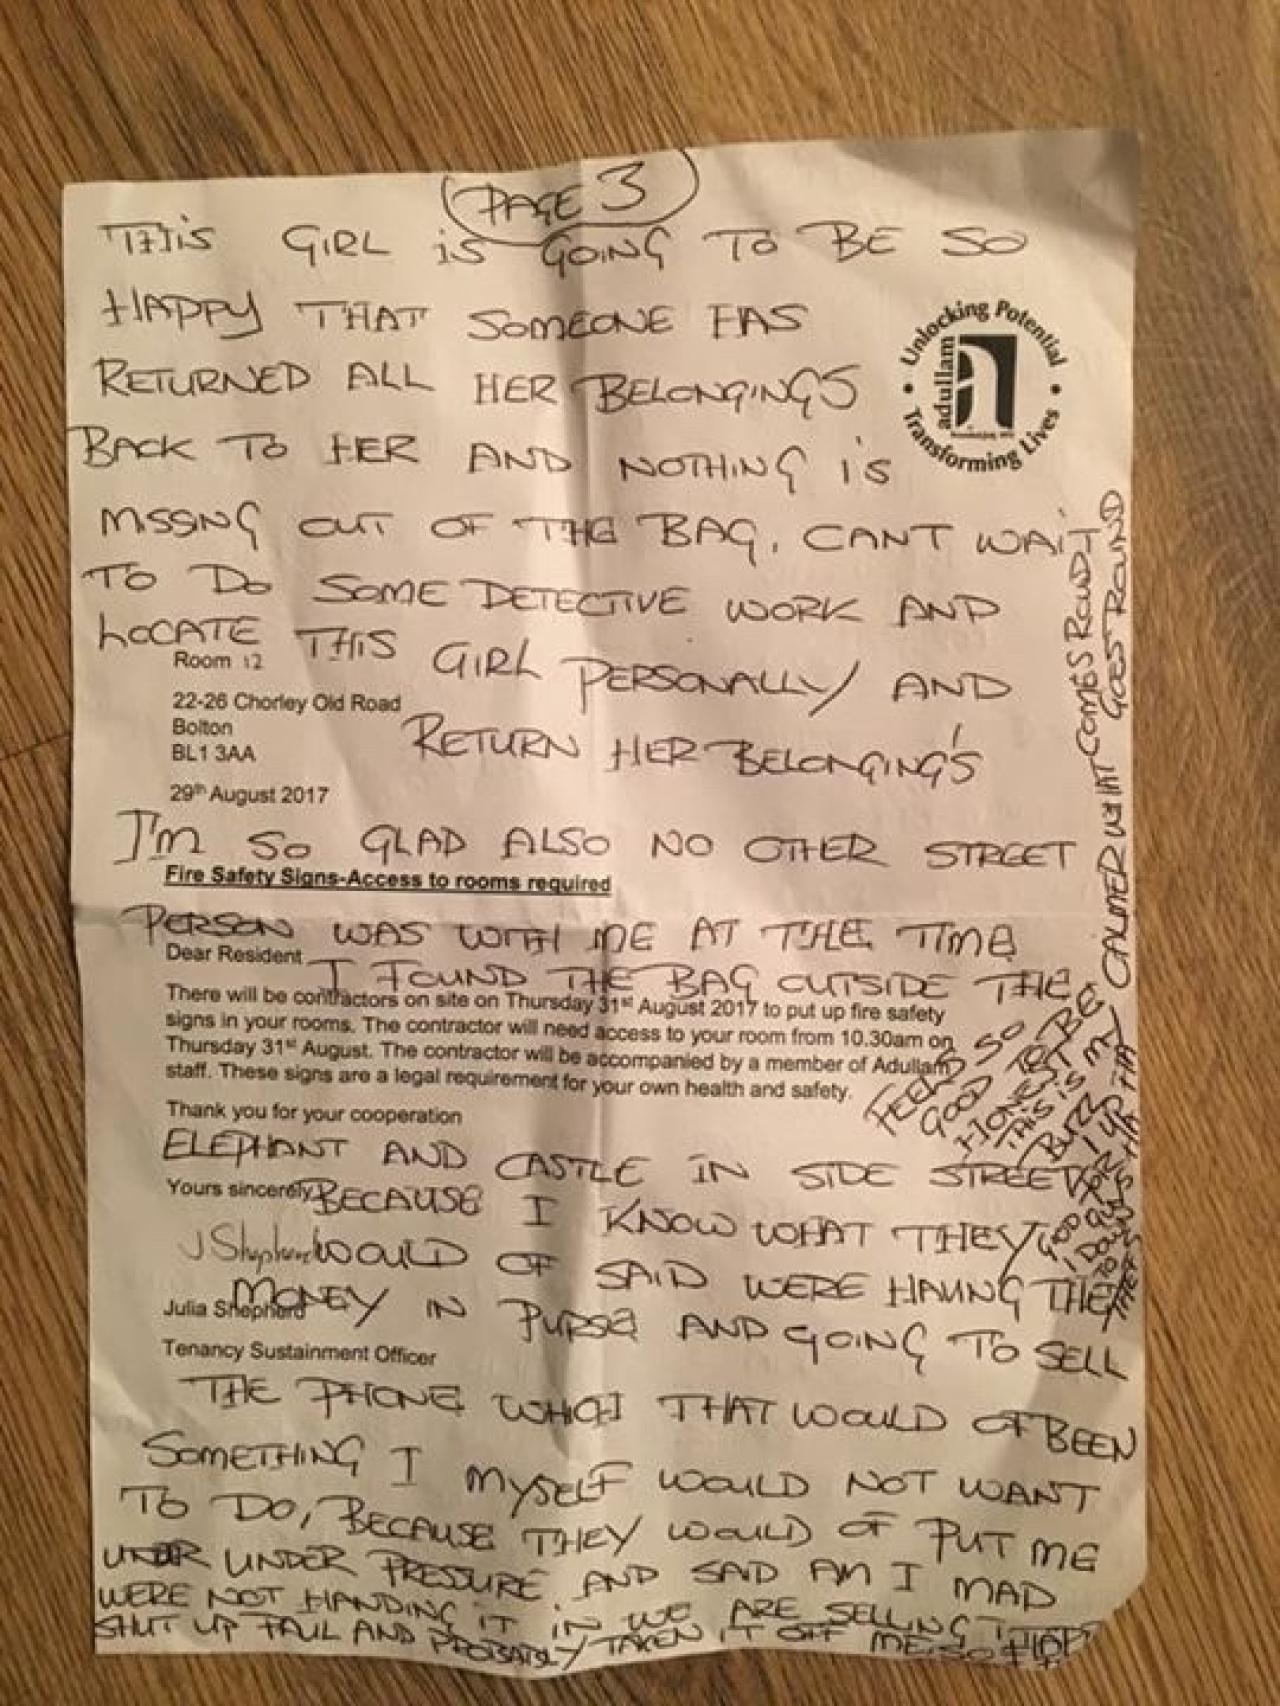 PAGE 3
THIS GIRL IS GOING TO BE SO
HAPPY THAT SOMEONE HAS
RETURNED ALL HER BELONGINGS
BACK TO HER AND NOTHING IS
MISSNG OUT OF THE BAG, CANT WAIT
TO DO SOME DETECTIVE WORK AND
LOCATE THIS GIRL PERSONALLY AND
RETURN HER BELONGING'S
Unlocking Potential
adullam
Transforming Lives
Room 12
22-26 Chorley Old Road
Bolton
BL1 3AA
29th August 2017
I'M SO GLAD ALSO NO OTHER STREET
Fire Safety Signs-Access to rooms required
PERSON WAS WITH ME AT THE TIME
Dear Resident
I FOUND THE BAG OUTSIDE THE
There will be contractors on site on Thursday 31st August 2017 to put up fire safety
signs in your rooms. The contractor will need access to your room from 10.30am on
Thursday 31st August. The contractor will be accompanied by a member of Adullam
staff. These signs are a legal requirement for your own health and safety.
Thank you for your cooperation
ELEPHANT AND CASTLE IN SIDE STREET
Yours sincerely
BECAUSE I KNOW WHAT THEY
J Shepherd
WOULD OF SAID WERE HAVING THE
MONEY IN PURSE AND GOING TO SELL
Julia Shepherd
Tenancy Sustainment Officer
THE PHONE WHICH THAT WOULD OF BEEN
SOMETHING I MYSELF WOULD NOT WANT
TO DO, BECAUSE THEY WOULD OF PUT ME
UNDER PRESSURE AND SAID AM I MAD
WERE NOT HANDING IT IN WE ARE SELLING IT
SHUT UP PAUL AND PROBABLY TAKEN IT OFF ME SO
FEELS SO
GOOD TO BE
HONEST
THIS IS MY
BUZZ
CALMER WHAT COMES ROUND
GOES ROUND